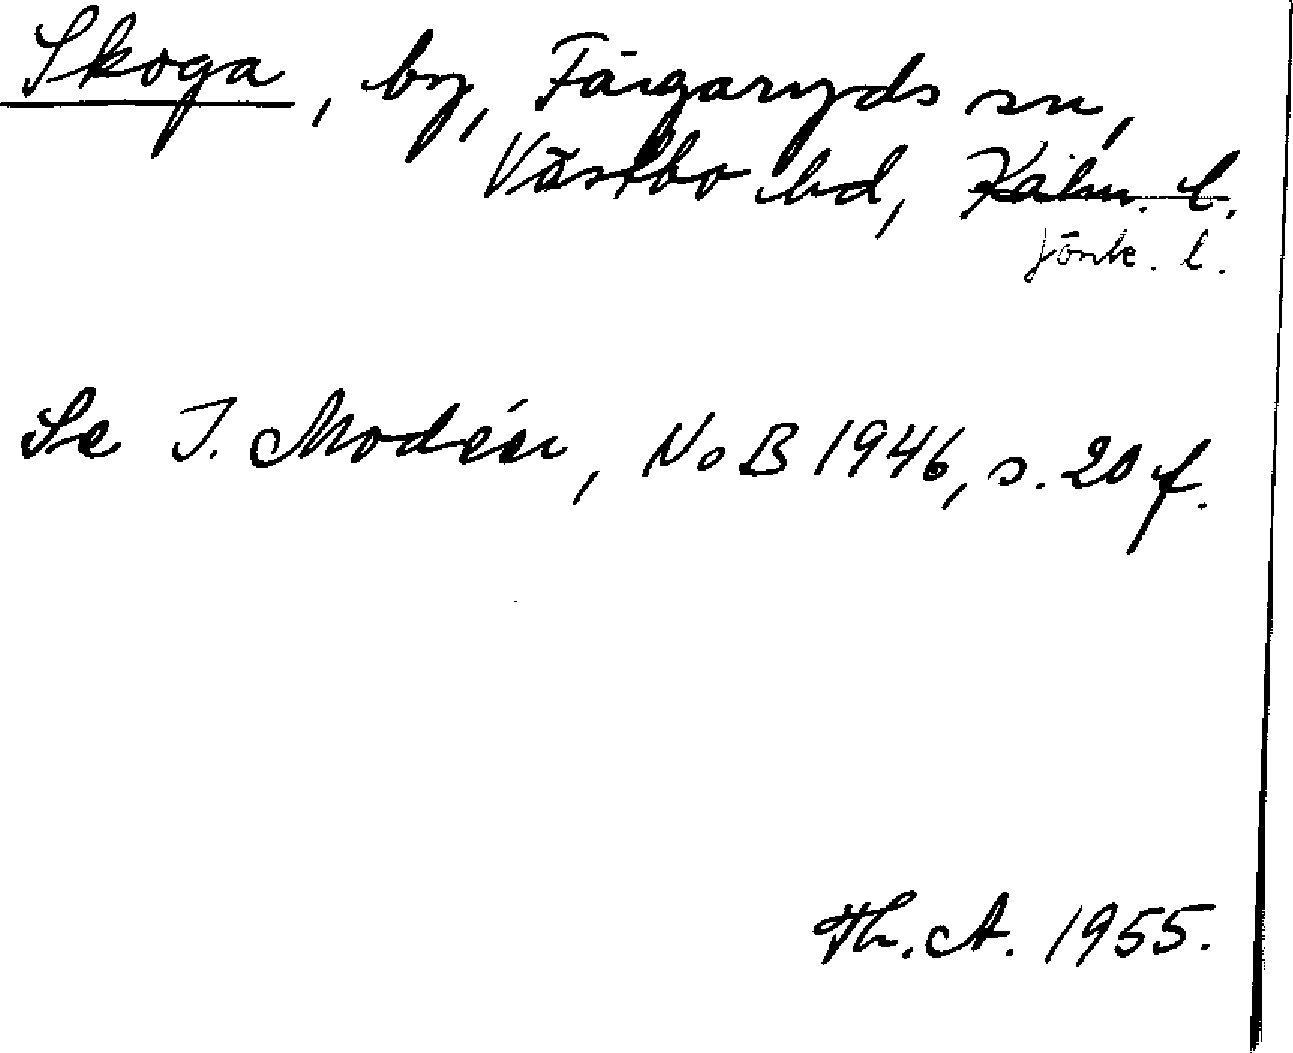 Skoga, by, Färgaryds sn,
Västbo hd, Kalm. l.
Jönk. l.
Se I. Modéer, NoB 1946, s. 20 f.
Th. A. 1955.